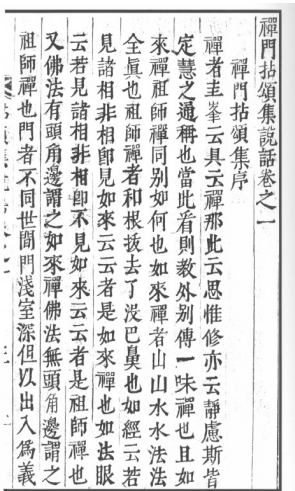 禪門拈頌集說話卷之一
禪門拈頌集序
禪者圭峯云具云禪那此云思惟修亦云靜慮斯皆
定慧之通稱也當此看則敎外别傳一味禪也且如
來禪祖師禪同别如何也如來禪者山山水水法法
全眞也祖師禪者和根拔去了沒巴鼻也如經云若
見諸相非相卽見如來云云者是如來禪也如法眼
云若見諸相非相卽不見如來云云者是祖師禪也
又佛法有頭角邊謂之如來禪佛法無頭角邊謂之
祖師禪也門者不同世間門淺室深但以出入爲義